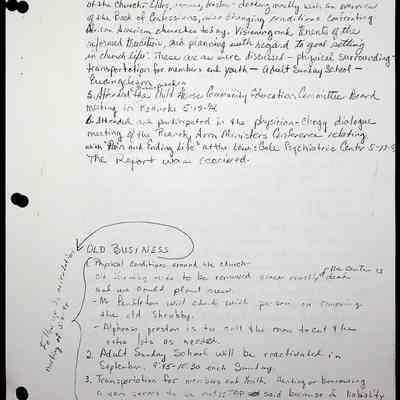 of the church - Elder, - dealing really with an overview
of the Book of Confessions, also changing conditions confronting
African American churches today. Visioning and tenants of the
reformed tradition, and planning with regard to goal setting
in church life. These areas were discussed - physical surrounding -
transportation for members and youth - Adult Sunday School -
Evangelism
5. Attended the House Community Education Committee Board
meeting in Roanoke 5-19-94
6. Attended and participated in the physician-Clergy dialogue
meeting of the Roanoke Area Ministers Conference relating
with "Pain and Ending Life" at the Lewis-Gale Psychiatric Center 5-17-94
The Report was received.
OLD BUSINESS
1. Physical conditions around the church -
old shrubbery needs to be removed since really the center is dead
and we should plant new.
- Mr Pendleton will check with person on removing
the old shrubby.
- Alphonso, preston is to call the man to cut the
extra lots as needed.
2. Adult Sunday School will be reactivated in
September. 9:45-10:30 each Sunday.
3. Transportation for members and Youth. Renting or borrowing
a van seems to be out. STOP said business is liability